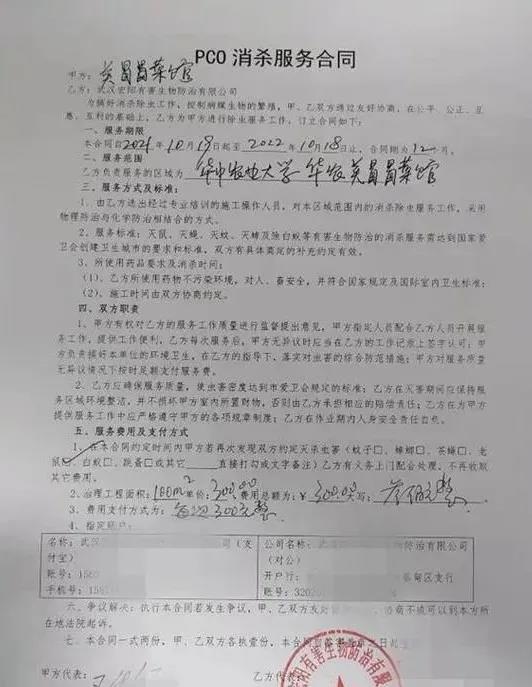 PCO 消杀服务合同
甲方：英昌昌菜馆
乙方：武汉宏阳有害生物防治有限公司
为搞好消杀除虫工作，控制病媒生物的繁殖，甲、乙双方通过友好协商，在公平、公正、互
惠、互利的基础上，乙方为甲方进行除虫服务工作，订立合同如下：
一、服务期限
本合同自2021年10月19日起至2022年10月18日止，合同期为12个月。
二、服务范围
乙方负责服务的区域为 华中农业大学 华农英昌昌菜馆
三、服务方式及标准：
1．由乙方选出经过专业培训的施工操作人员，对本区域范围内的消杀除虫服务工作，采用
物理防治与化学防治相结合的方式。
2、服务标准：灭鼠、灭蝇、灭蚊、灭蟑及除白蚁等有害生物防治的消杀服务需达到国家爱
卫会创建卫生城市的要求和标准，双方有具体商定的补充约定有效。
3、所使用药品要求及消杀时间：
(1)、乙方所使用药物不污染环境，对人、畜安全，并符合国家规定及国际室内卫生标准；
(2)、施工时间由双方协商约定。
四、双方职责
1、甲方有权对乙方的服务工作质量进行监督提出意见，甲方指定人员配合乙方人员开展服
务工作，提供工作便利，乙方每次服务后，甲方无异议时应当在乙方的工作记录上签字认可；甲
方负责搞好本单位的环境卫生，在乙方的指导下，落实对虫害的综合防范措施；甲方对服务质量
无异议情况下按时足额支付服务费。
2、乙方应确保服务质量，使虫害密度达到市爱卫会规定的标准；乙方在灭害期间应保持服
务区域环境整洁，并不损坏甲方室内所置财物，否则由乙方承担相应的赔偿责任；乙方在为甲方
提供服务工作中应严格遵守甲方的各项规章制度；乙方在作业期内人身安全责任自负。
五、服务费用及支付方式
1、在本合同约定时间内甲方若再次发现双方约定灭杀虫害（蚊子□、蟑螂□、苍蝇□、老
鼠☑、白蚁□、跳蚤□或其它 直接打勾或文字备注）乙方有义务上门配合处理，不再收取
其它费用。
2、治理工程面积：100m²单价：300.00 费用总额为：￥300.00大写：叁佰元整
3、费用支付方式为：每次300元整
4、指定账户：
名称：武汉 司（支
付宝）
账号：158
手机号：158
公司名称： 物防治有限公司
（对公）
开户行： 蔡甸区支行
账号：3202
六、争议解决：执行本合同若发生争议，甲、乙双方友好 协商不成可以到本方所
在地法院起诉。
七、本合同一式两份，甲、乙双方各执壹份，本合同自签署 之日起
甲方代表：
乙方代表：
阳有害生物防治有限